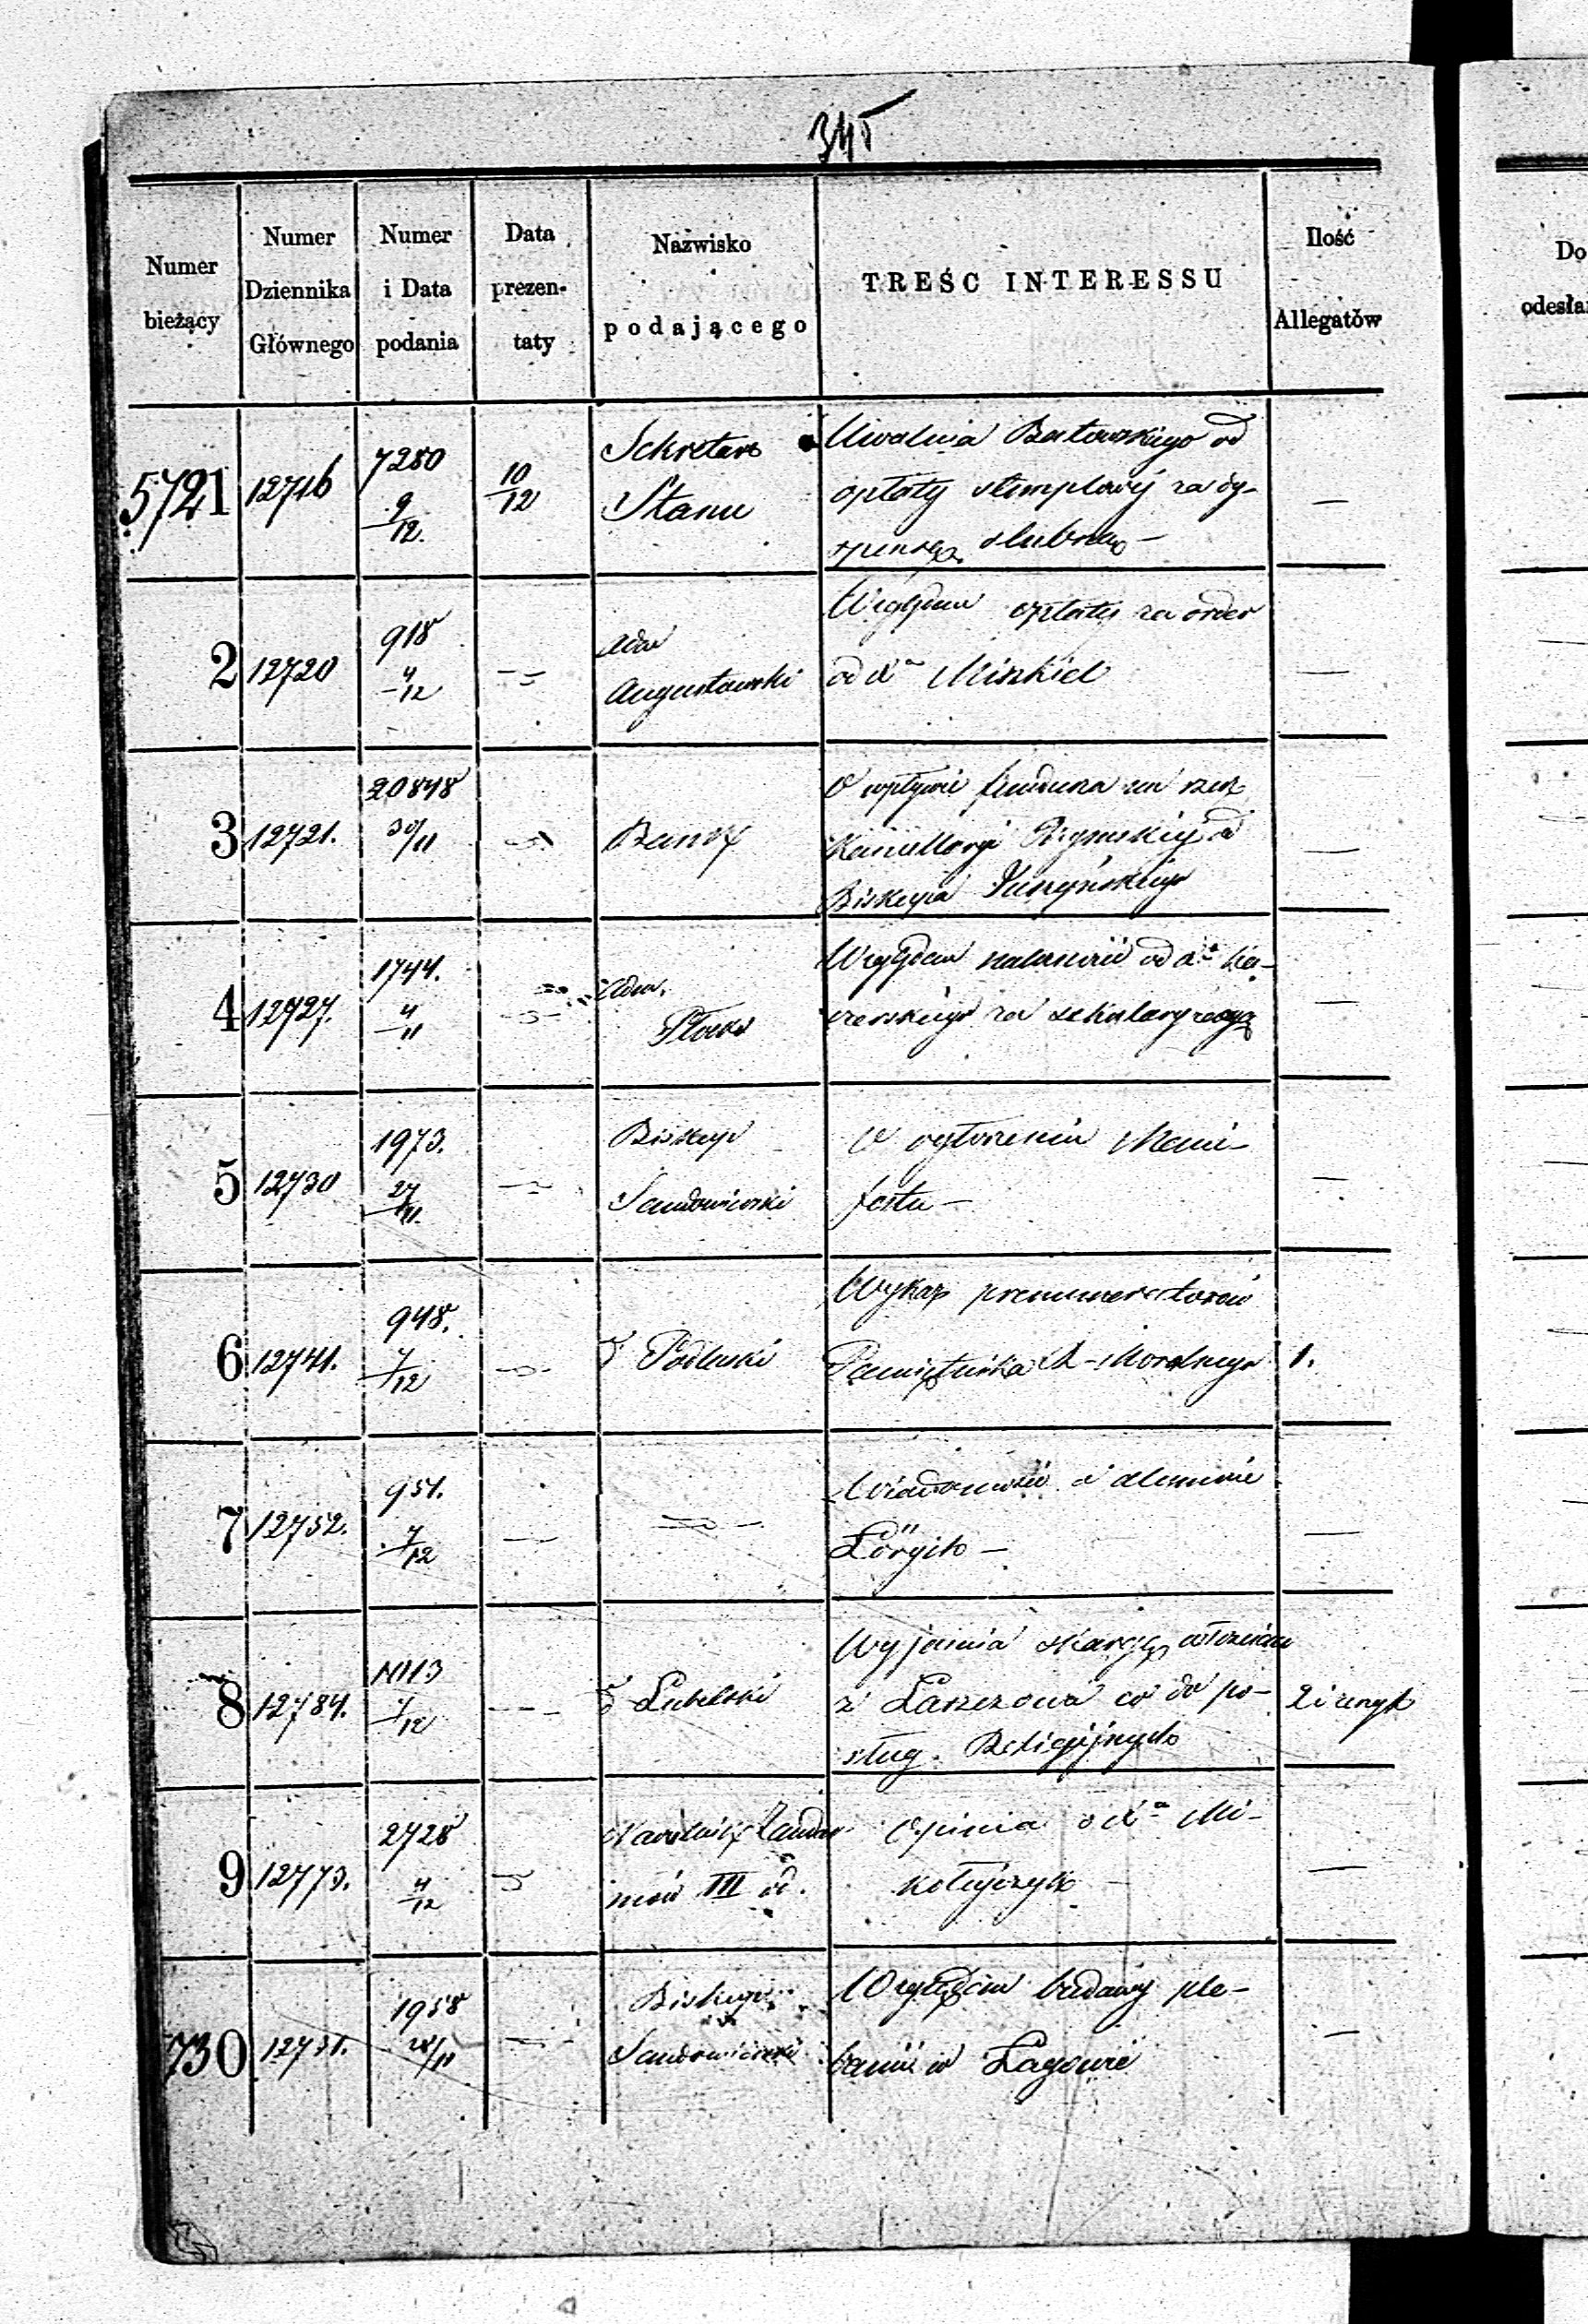 345
Numer bieżący
Numer Dziennika Głównego
Numer i Data podania
Data prezen-taty
Nazwisko podającego
TREŚC INTERESSU
Ilość Allegatów
Do
odesła
5721 12716 7280 9/12. 10/12 Sekretarz Stanu
Uwalnia Butowskiego od
opłaty stemplowej za dy-
spensę ślubną —
—
2 12720 918 4/12 Adm Augustowski
Względem opłaty za order
od Xa Miszkiel
—
3 12721. 20848 30/11 Bank
O wpływie funduszu na rzecz
Kancellaryi Rzymskiej od
Biskupa Juszyńskiego
—
4 12727. 1744. 4/11 Adm. Płocki
Względem należności od Xa
za sekularyzacyą
—
5 12730 1973. 27/11. Biskup Sandomierski
O ogłoszeniu Mani-
festu —
—
6 12741. 948. 7/12 Podlaski
Wykaz prenumeratorów
Pamiętnika R-Moralnego
1.
7 12752. 951. 7/12
Wiadomość o alumnie
—
8 12784. 1113 7/12 Lubelski
Wyjaśnia skargę włościan
z Łaszczowa co do po-
sług Religijnych
2 i
9 12773. 2728 4/12 Naczelnik Żandar
mów III od.
Opinia o Xa Mi-
kołajczyk
—
730 12731. 1958 28/11 Biskup Sandomierski
Względem budowy ple-
banii w Łagowie
—